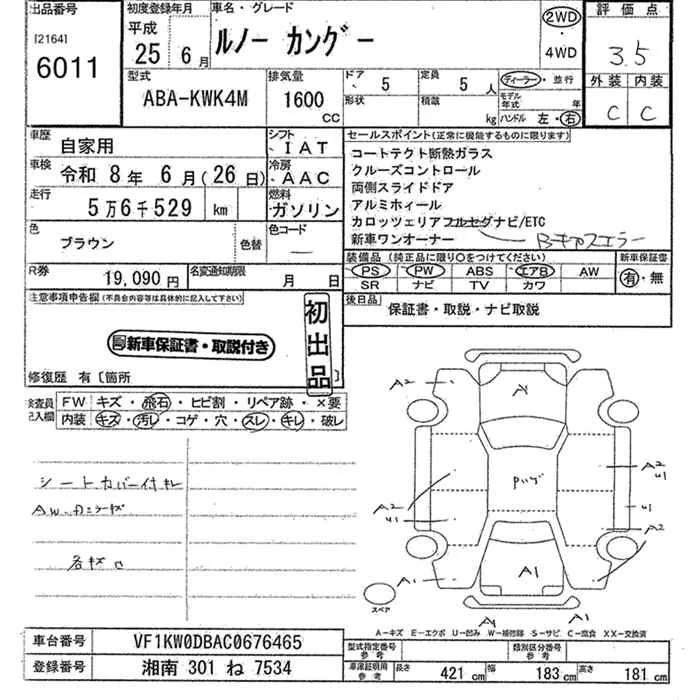 出品番号
[2164]
6011
初度登録年月
平成
25 6月
車名・グレード
ルノー カングー
2WD
・
4WD
評価点
3.5
外装 内装
C C
型式
ABA-KWK4M
排気量
1600
CC
ドア
5
定員
5人
形状
積載
kg
ディーラー・並行
モデル年式 年
ハンドル 左・右
車歴
自家用
シフト
IAT
車検
令和 8年 6月(26日)
冷房
AAC
走行
5万6千529 km
燃料
ガソリン
色
ブラウン
色替
色コード
—
R券
19,090円
名変通知期限
月 日
セールスポイント(正常に機能するものに限ります)
コートテクト断熱ガラス
クルーズコントロール
両側スライドドア
アルミホィール
カロッツェリアフルセグナビ/ETC
新車ワンオーナー
装備品(純正品に限り○をつけてください)
新車保証書
PS PW ABS エアB AW
有・無
SR ナビ TV カワ
後日品
保証書・取説・ナビ取説
注意事項申告欄(不具合内容等は具体的に記入して下さい)
新車保証書・取説付き
初出品
修復歴 有〔箇所 〕
検査員
記入欄
FW キズ・飛石・ヒビ割・リペア跡・×要
内装 キズ・汚レ・コゲ・穴・スレ・キレ・破レ
シートカバー付キレ
A2
A
A2
U1
Pいげ
U1
A2
U1
A2
A1
A1
A1
A1
スペア
A-キズ E-エクボ U-凹み W-補修跡 S-サビ C-腐食 XX-交換済
車台番号
VF1KW0DBAC0676465
登録番号
湘南 301 ね 7534
型式指定番号
参考
類別区分番号
参考
車庫証明用
参考
長さ 421cm 幅 183cm 高さ 181cm